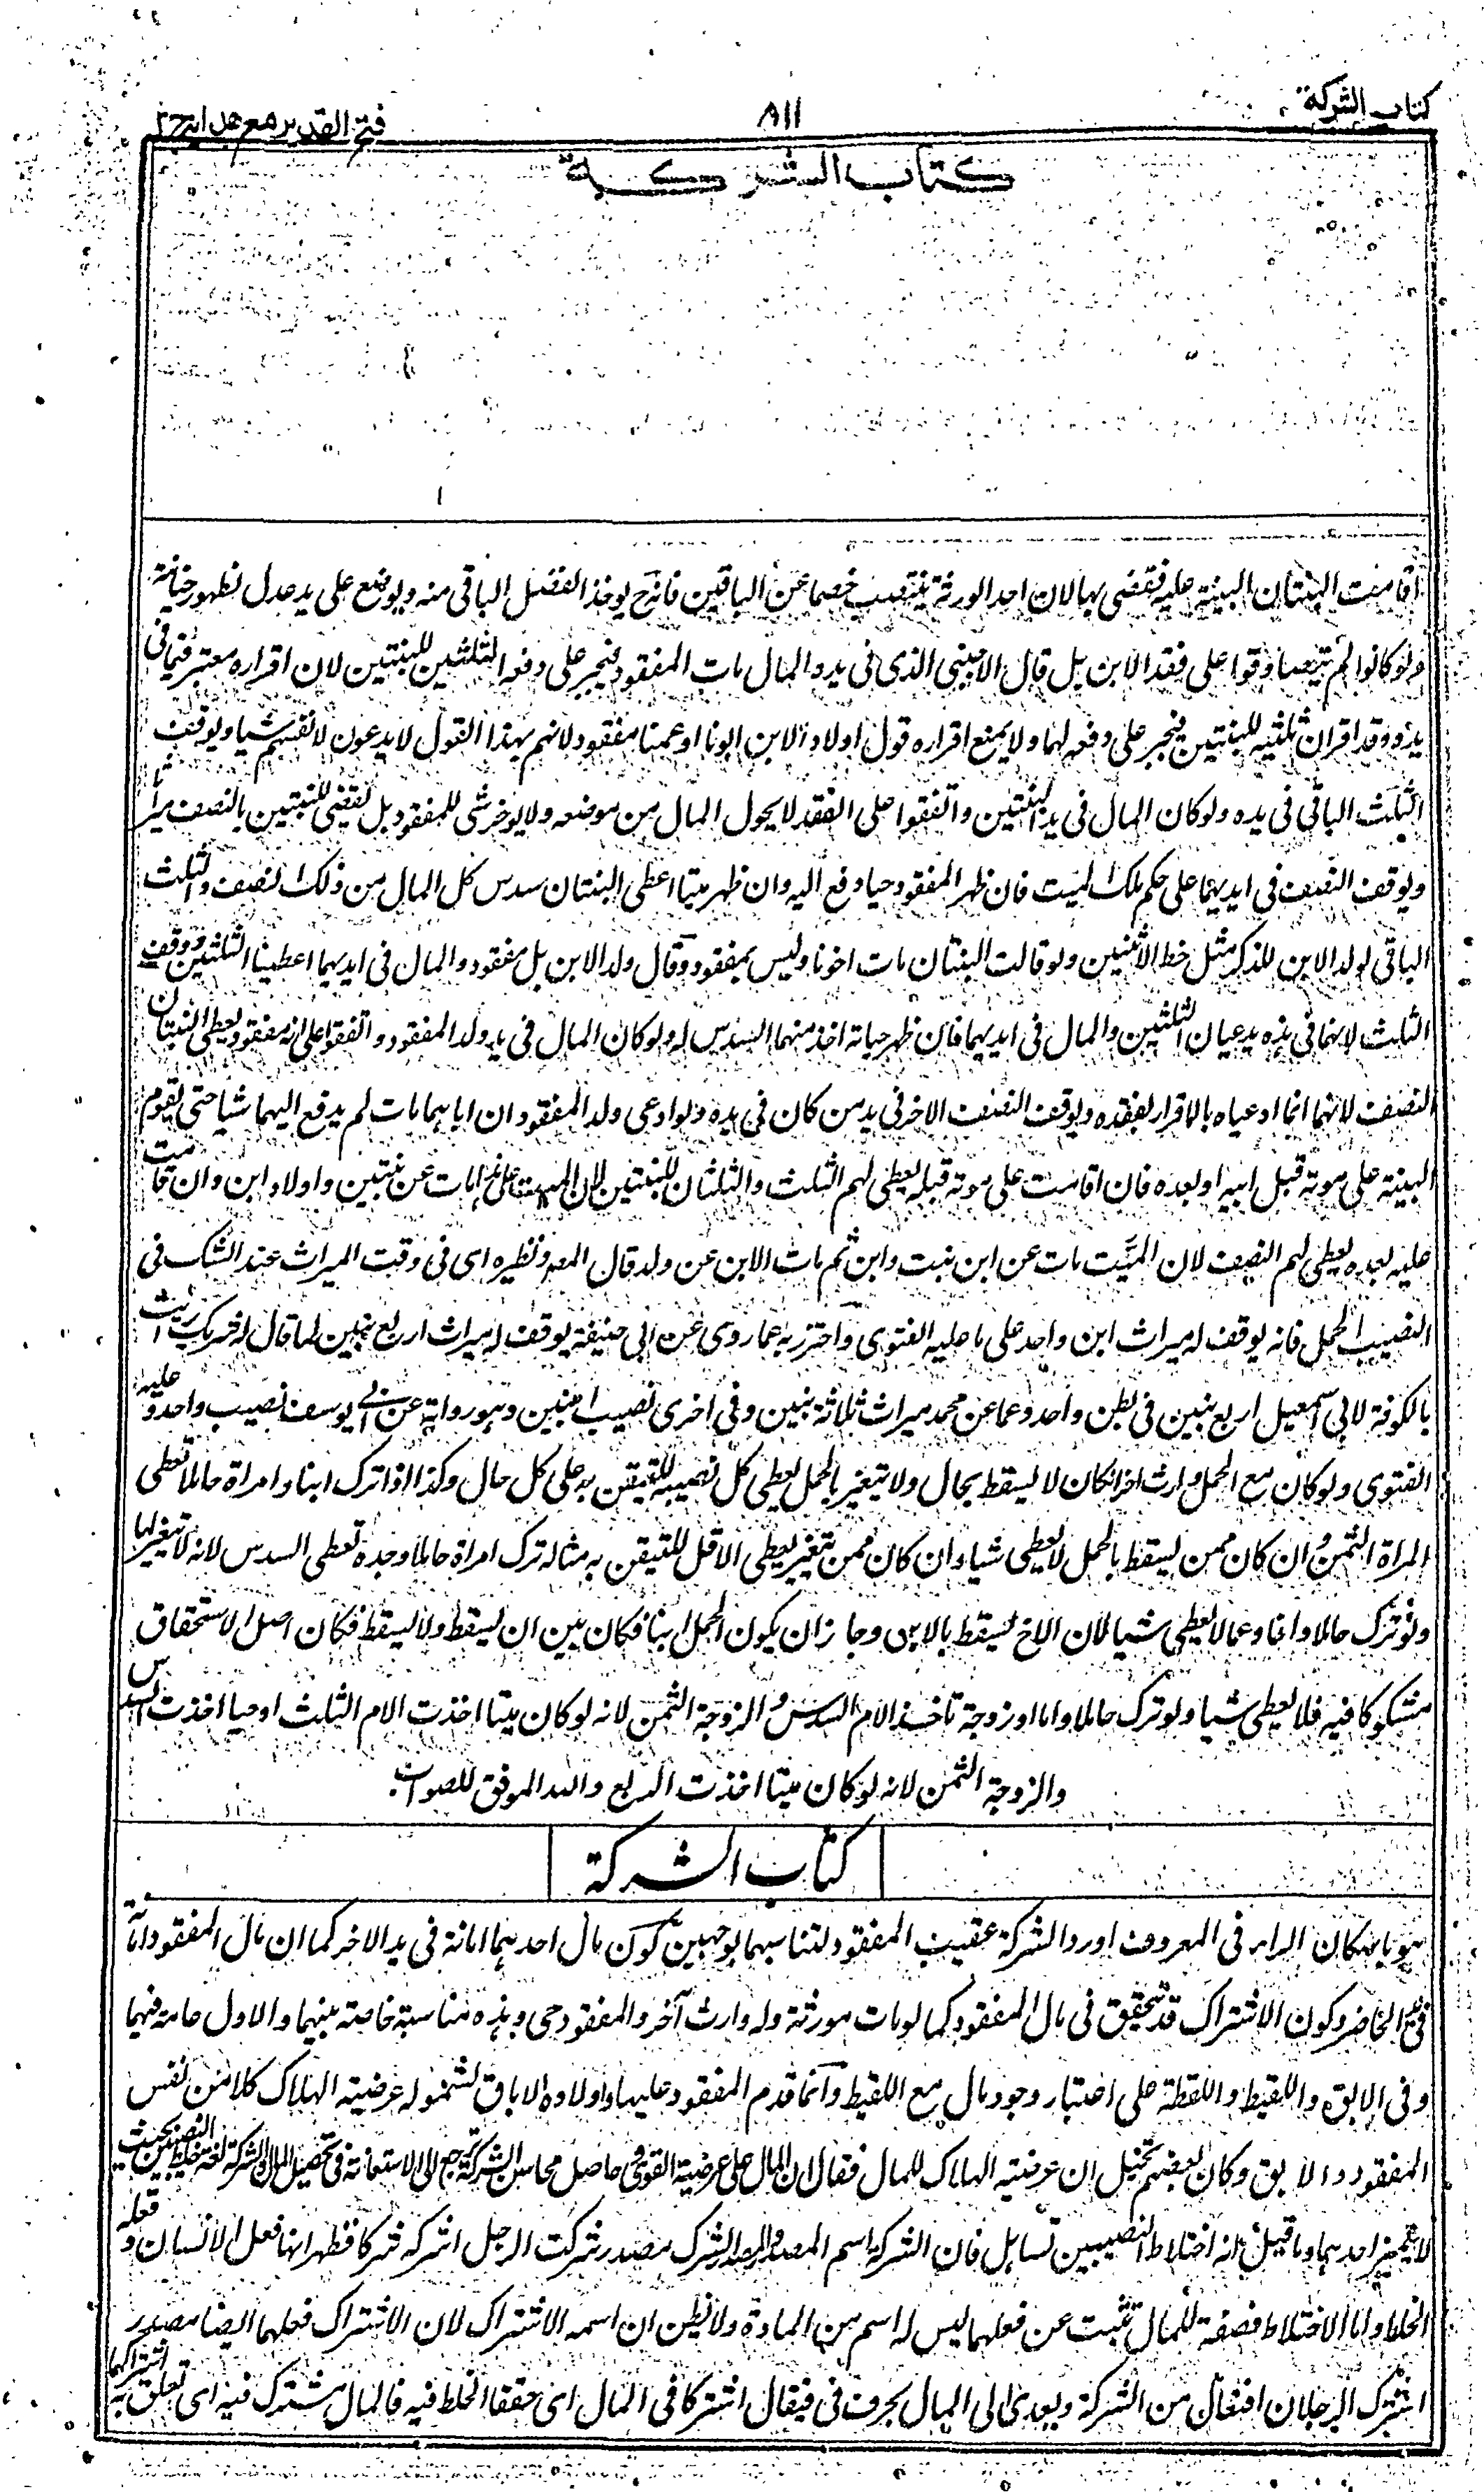 كتاب الشركة
٨١١
فتح القدير مع هدايه ج٢
كتاب الشركة
اقامت البنتان البينة عليه فقضى بها لان احد الورثة ينتصب خصما عن الباقين فانه ح يوخذ الفضل الباقى منه ويوضع على يد عدل لظهور خيانته
ولو كانوا لم يتصادقوا على فقد الابن بل قال الاجنبى الذى فى يده المال مات المفقود فيجبر على دفع الثلثين للبنتين لان اقراره معتبر فيما فى
يده وقد اقر ان ثلثيه للبنتين فيجبر على دفعه لهما ولا يمنع اقراره قول اولاد الابن ابونا او عمنا مفقود لانهم بهذا القول لا يدعون لانفسهم شيا ويوقف
الثلث الباقى فى يده ولو كان المال فى يد البنتين واتفقوا على الفقد لا يحول المال من موضعه ولا يوخذ شى للمفقود بل يقضى للبنتين بالنصف ميراثا
ويوقف النصف فى ايديهما على حكم ملك الميت فان ظهر المفقود حيا دفع اليه وان ظهر ميتا اعطى البنتان سدس كل المال من ذلك النصف والثلث
الباقى لولد الابن للذكر مثل حظ الانثيين ولو قالت البنتان مات اخونا وليس بمفقود وقال ولد الابن بل مفقود والمال فى ايديهما اعطيتا الثلثين ووقف
الثلث لانهما فى هذه يدعيان الثلثين والمال فى ايديهما فان ظهر حياته اخذ منهما السدس له ولو كان المال فى يد ولد المفقود واتفقوا على انه مفقود يعطى البنتان
النصف لانهما انما ادعياه بالاقرار بفقده ويوقف النصف الاخر فى يد من كان فى يده ولو ادعى ولد المفقود ان اباهما مات لم يدفع اليهما شيا حتى يقوم
البينة على موته قبل ابيه او بعده فان اقامت على موته قبله يعطى لهم الثلث والثلثان للبنتين لان الميت على هذا مات عن بنتين واولاد ابن وان قامت
عليه بعده يعطى لهم النصف لان الميت مات عن ابن بنت وابن ثم مات الابن عن ولد قال المصه ونظيره اى فى وقت الميراث عند الشك فى
النصيب الحمل فانه يوقف له ميراث ابن واحد على ما عليه الفتوى واحترز به عما روى عن ابى حنيفة يوقف له ميراث اربع بنين لما قال شريك رأيت
بالكوفة لابى اسمعيل اربع بنين فى بطن واحد وعما عن محمد ميراث ثلاثة بنين وفى اخرى نصيب ابنين وهو رواية عن ابى يوسف نصيب واحد وعليه
الفتوى ولو كان مع الحمل وارث اخر انكان لا يسقط بحال ولا يتغير بالحمل يعطى كل نصيبه للتيقن به على كل حال وكذا اذا ترك ابنا وامراة حاملا تعطى
المراة الثمن وان كان ممن يسقط بالحمل لا يعطى شيا وان كان ممن يتغير يعطى الاقل للتيقن به مثاله ترك امراة حاملا وجدة تعطى السدس لانه لا تغير لها
ولو ترك حاملا واخا وعما لا يعطى شيا لان الاخ يسقط بالابن وجاز ان يكون الحمل ابنا فكان بين ان يسقط ولا يسقط فكان اصل الاستحقاق
مشكوكا فيه فلا يعطى شيا ولو ترك حاملا واما او زوجة تاخذ الام السدس والزوجة الثمن لانه لو كان ميتا اخذت الام الثلث او حيا اخذت السدس
والزوجة الثمن لانه لو كان ميتا اخذت الربع والله الموفق للصواب
كتاب الشركة
هو باسكان الراء فى المعروف اورد الشركة عقيب المفقود لتناسبهما بوجهين كون مال احدهما امانة فى يد الاخر كما ان مال المفقود امانة
فى يد الحاضر وكون الاشتراك قد يتحقق فى مال المفقود كما لو مات مورثه وله وارث آخر والمفقود حى وهذه مناسبة خاصة بينهما والاول عامة فيهما
وفى الابق واللقيط واللقطة على اعتبار وجود مال مع اللقيط وانما قدم المفقود عليها واولاه الاباق لشمول عرضية الهلاك كلا من نفس
المفقود والابق وكان بعضهم تخيل ان عرضية الهلاك للمال فقال ان المال على عرضية التوى وحاصل محاسن الشركة ترجع الى الاستعانة فى تحصيل المال والشركة لغة خلط النصيبين بحيث
لا يتميز احدهما وما قيل انه اختلاط النصيبين تساهل فان الشركة اسم المصدر والمصدر الشرك مصدر شركت الرجل اشركه شركا فظهر انها فعل الانسان وفعله
الخلط واما الاختلاط فصفة للمال تثبت عن فعلهما ليس له اسم من المادة ولا نظن ان اسمه الاشتراك لان الاشتراك فعلهما ايضا مصدر
اشترك الرجلان افتعال من الشركة ويعدى الى المال بحرف فى فيقال اشتركا فى المال اى حققا الخلط فيه فالمال مشترك فيه اى تعلق به اشتراكهما